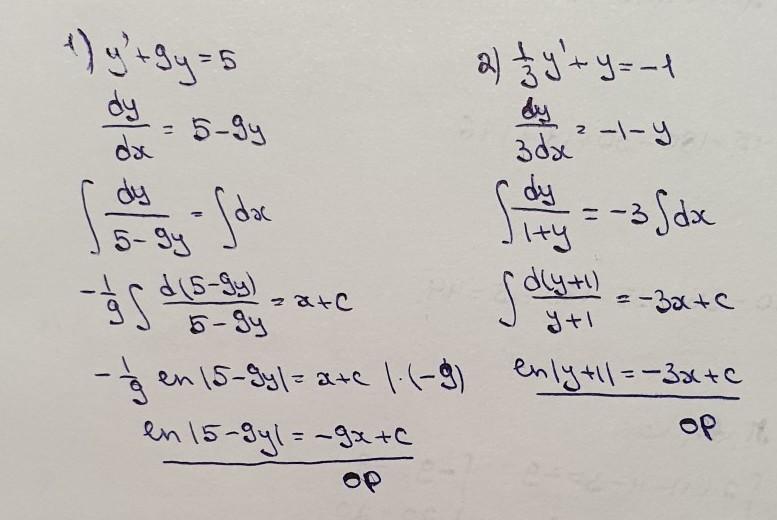 1) y' + 9y = 5
dy/dx = 5 - 9y
∫ dy/(5-9y) = ∫ dx
-1/9 ∫ d(5-9y)/(5-9y) = x+c
-1/9 ln |5-9y| = x+c |·(-9)
ln |5-9y| = -9x+c
op
2) 1/3 y' + y = -1
dy/3dx = -1-y
∫ dy/(1+y) = -3 ∫ dx
∫ d(y+1)/(y+1) = -3x+c
ln |y+1| = -3x+c
op